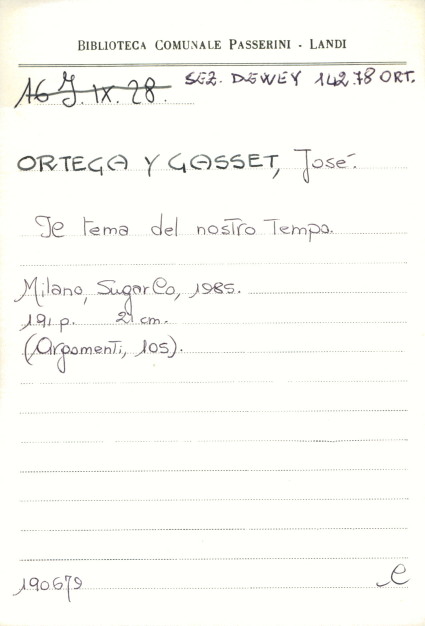 BIBLIOTECA COMUNALE PASSERINI - LANDI
16 J. IX. 28. SEZ. DEWEY 142.78 ORT.
ORTEGA Y GASSET, José.
Il tema del nostro tempo.
Milano, SugarCo, 1985.
191 p. 21 cm.
(Argomenti, 105).
190679